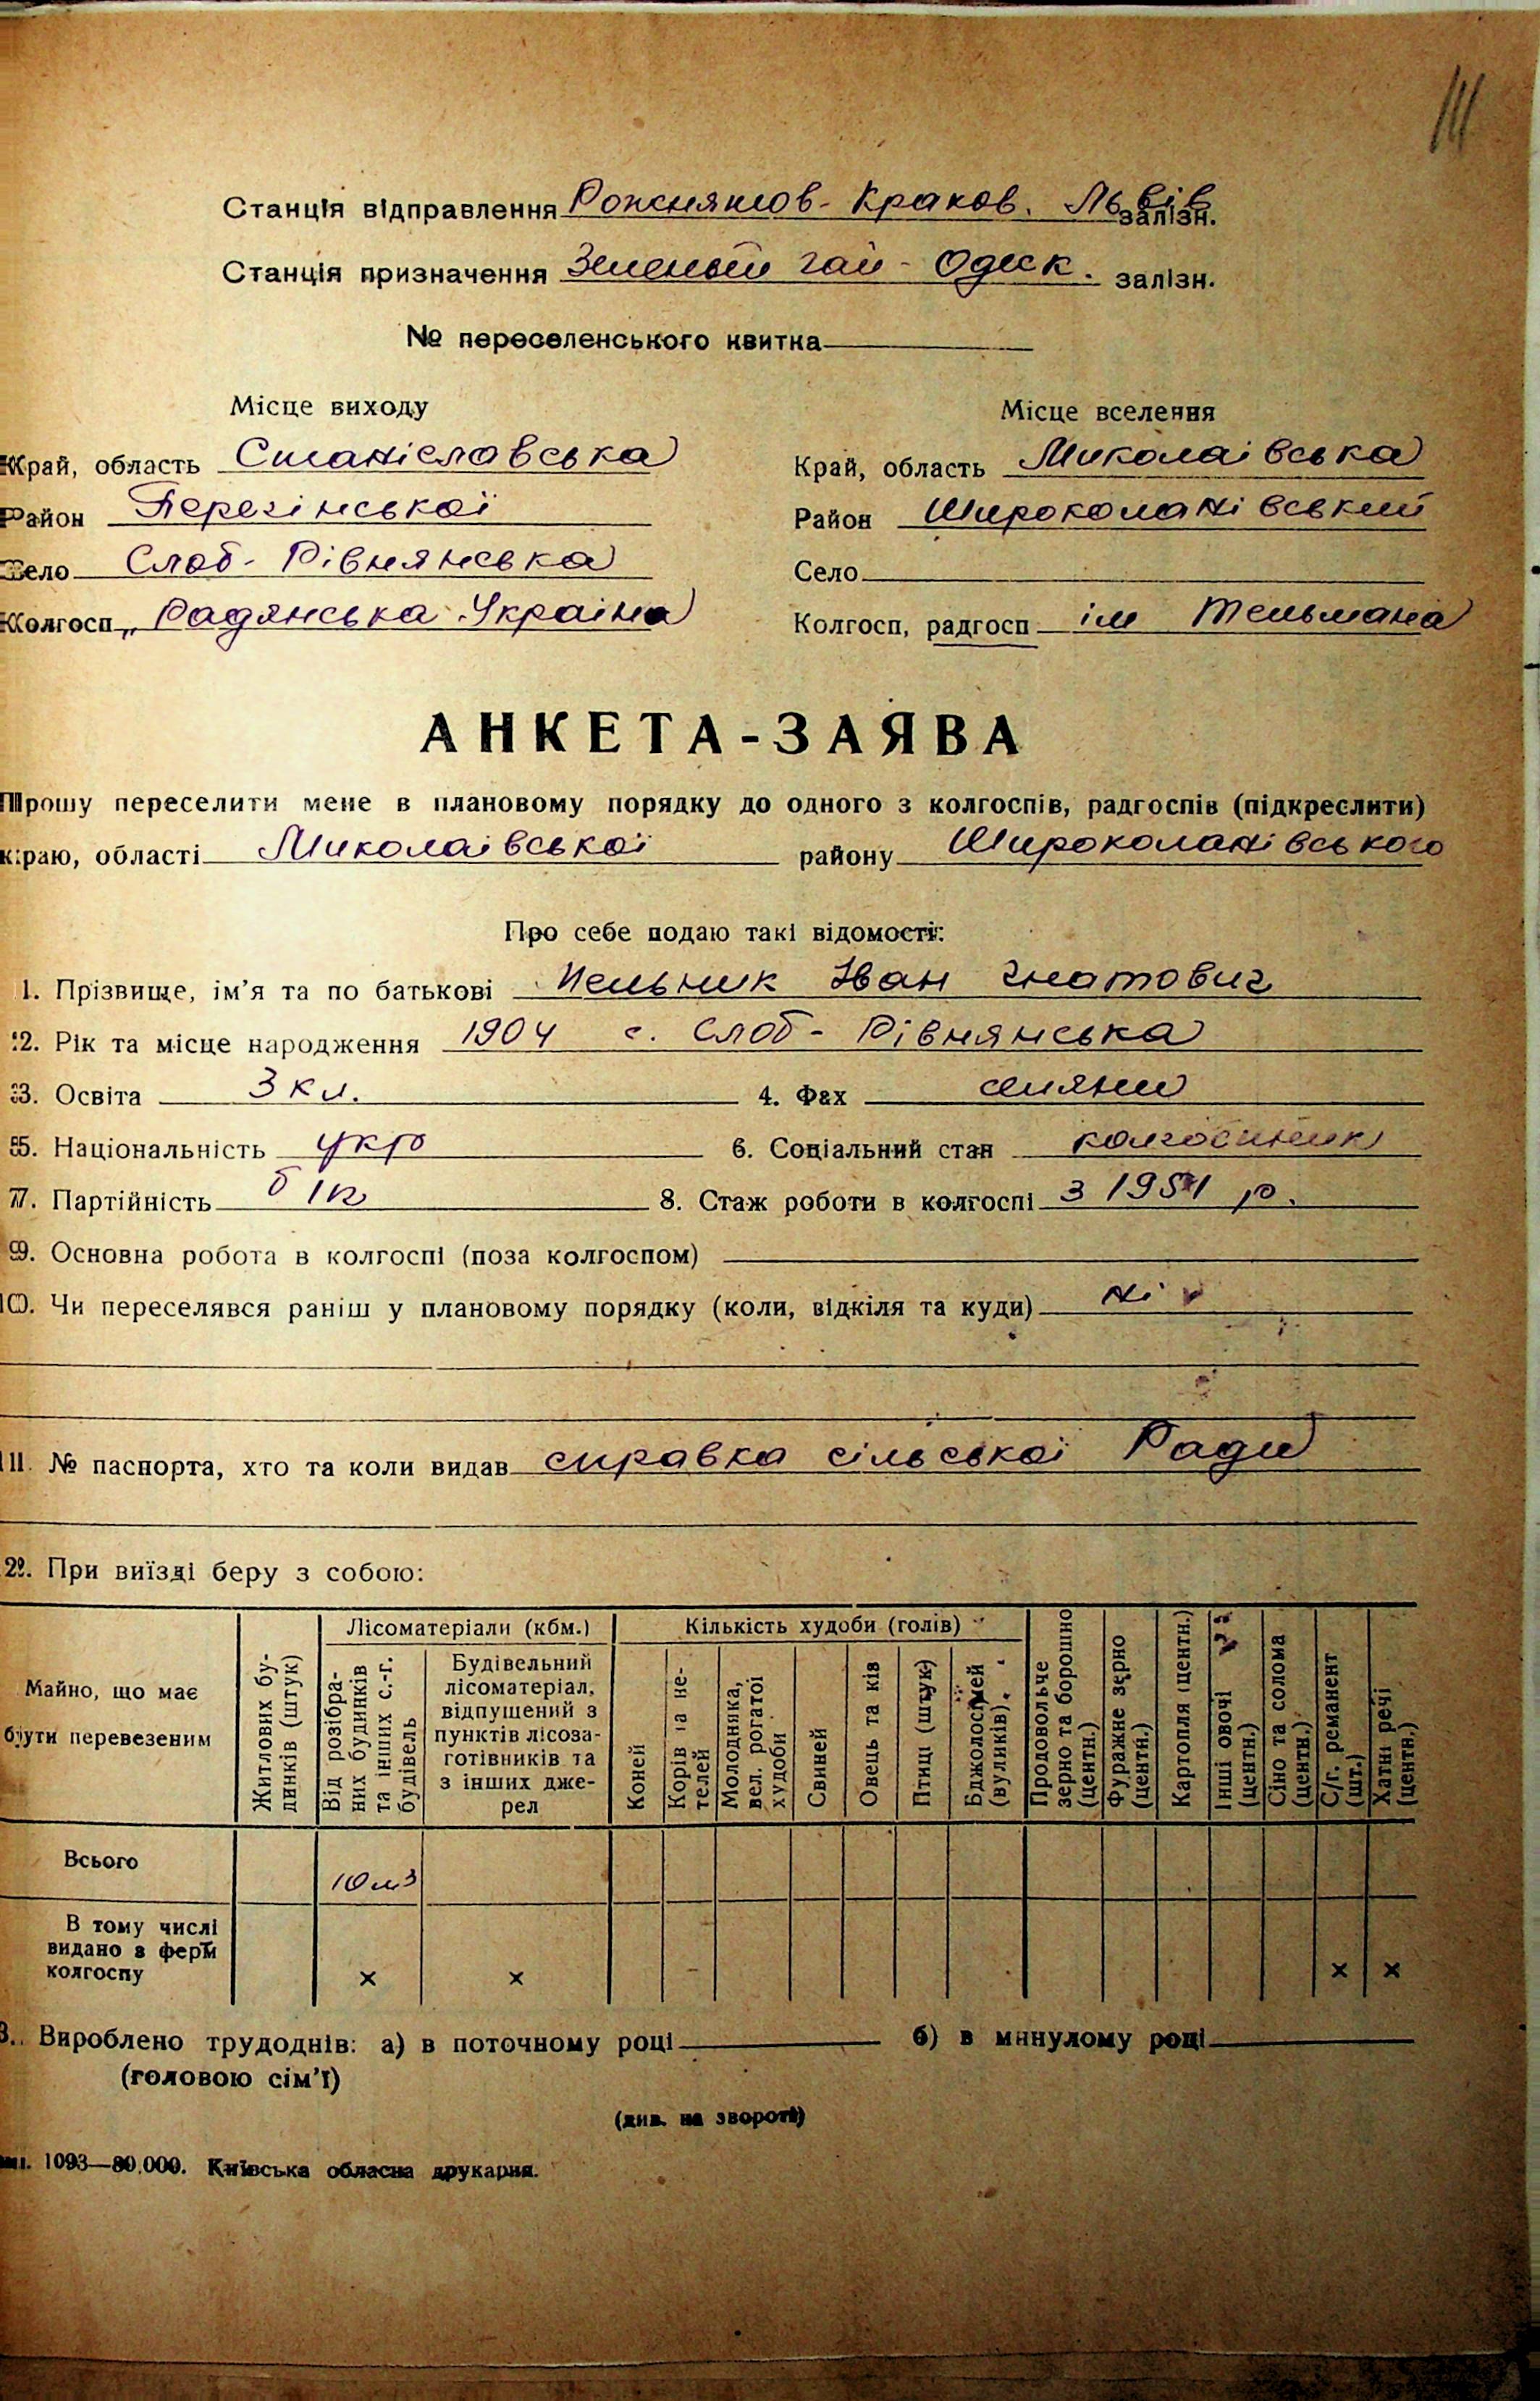 111
Станція відправлення Рожнятов - Краков. Львів залізн.
Станція призначення Зеленый гай - Одеск. залізн.
№ переселенського квитка
Місце виходу
Місце вселення
Край, область Станіславська
Край, область Миколаівська
Район Перегінської
Район Широколанівський
Село Слоб - Рівнянська
Село
Колгосп „Радянська Україна
Колгосп, радгосп ім Тельмана
АНКЕТА-ЗАЯВА
Прошу переселити мене в плановому порядку до одного з колгоспів, радгоспів (підкреслити)
краю, області Миколаівської району Широколанівського
Про себе подаю такі відомості:
1. Прізвище, ім’я та по батькові Мельник Іван Гнатович
2. Рік та місце народження 1904 с. Слоб - Рівнянська
3. Освіта 3 кл. 4. Фах
5. Національність укр 6. Соціальний стан колгоспник
7. Партійність б/п 8. Стаж роботи в колгоспі з 1951 р.
9. Основна робота в колгоспі (поза колгоспом)
10. Чи переселявся раніш у плановому порядку (коли, відкіля та куди) ні
11. № паспорта, хто та коли видав справка сільської Ради
2. При виїзді беру з собою:
Майно, що має
бути перевезеним
Житлових бу-
динків (штук)
Лісоматеріали (кбм.)
Від розібра-
них будинків
та інших с.-г.
будівель
Будівельний
лісоматеріал,
відпущений з
пунктів лісоза-
готівників та
з інших дже-
рел
Кількість худоби (голів)
Коней
Корів та не-
телей
Молодняка,
вел. рогатої
худоби
Свиней
Овець та ків
Птиці (штук)
Бджолосімей
(вуликів)
Продовольче
зерно та борошно
(центн.)
Фуражне зерно
(центн.)
Картопля (центн.)
Інші овочі
(центн.)
Сіно та солома
(центн.)
С/г. реманент
(шт.)
Хатні речі
(центн.)
Всього
10 м3
В тому числі
видано з ферм
колгоспу
× × × ×
3. Вироблено трудоднів: а) в поточному році б) в минулому році
(головою сім’ї)
(див. на звороті)
1093—80.000. Київська обласна друкарня.